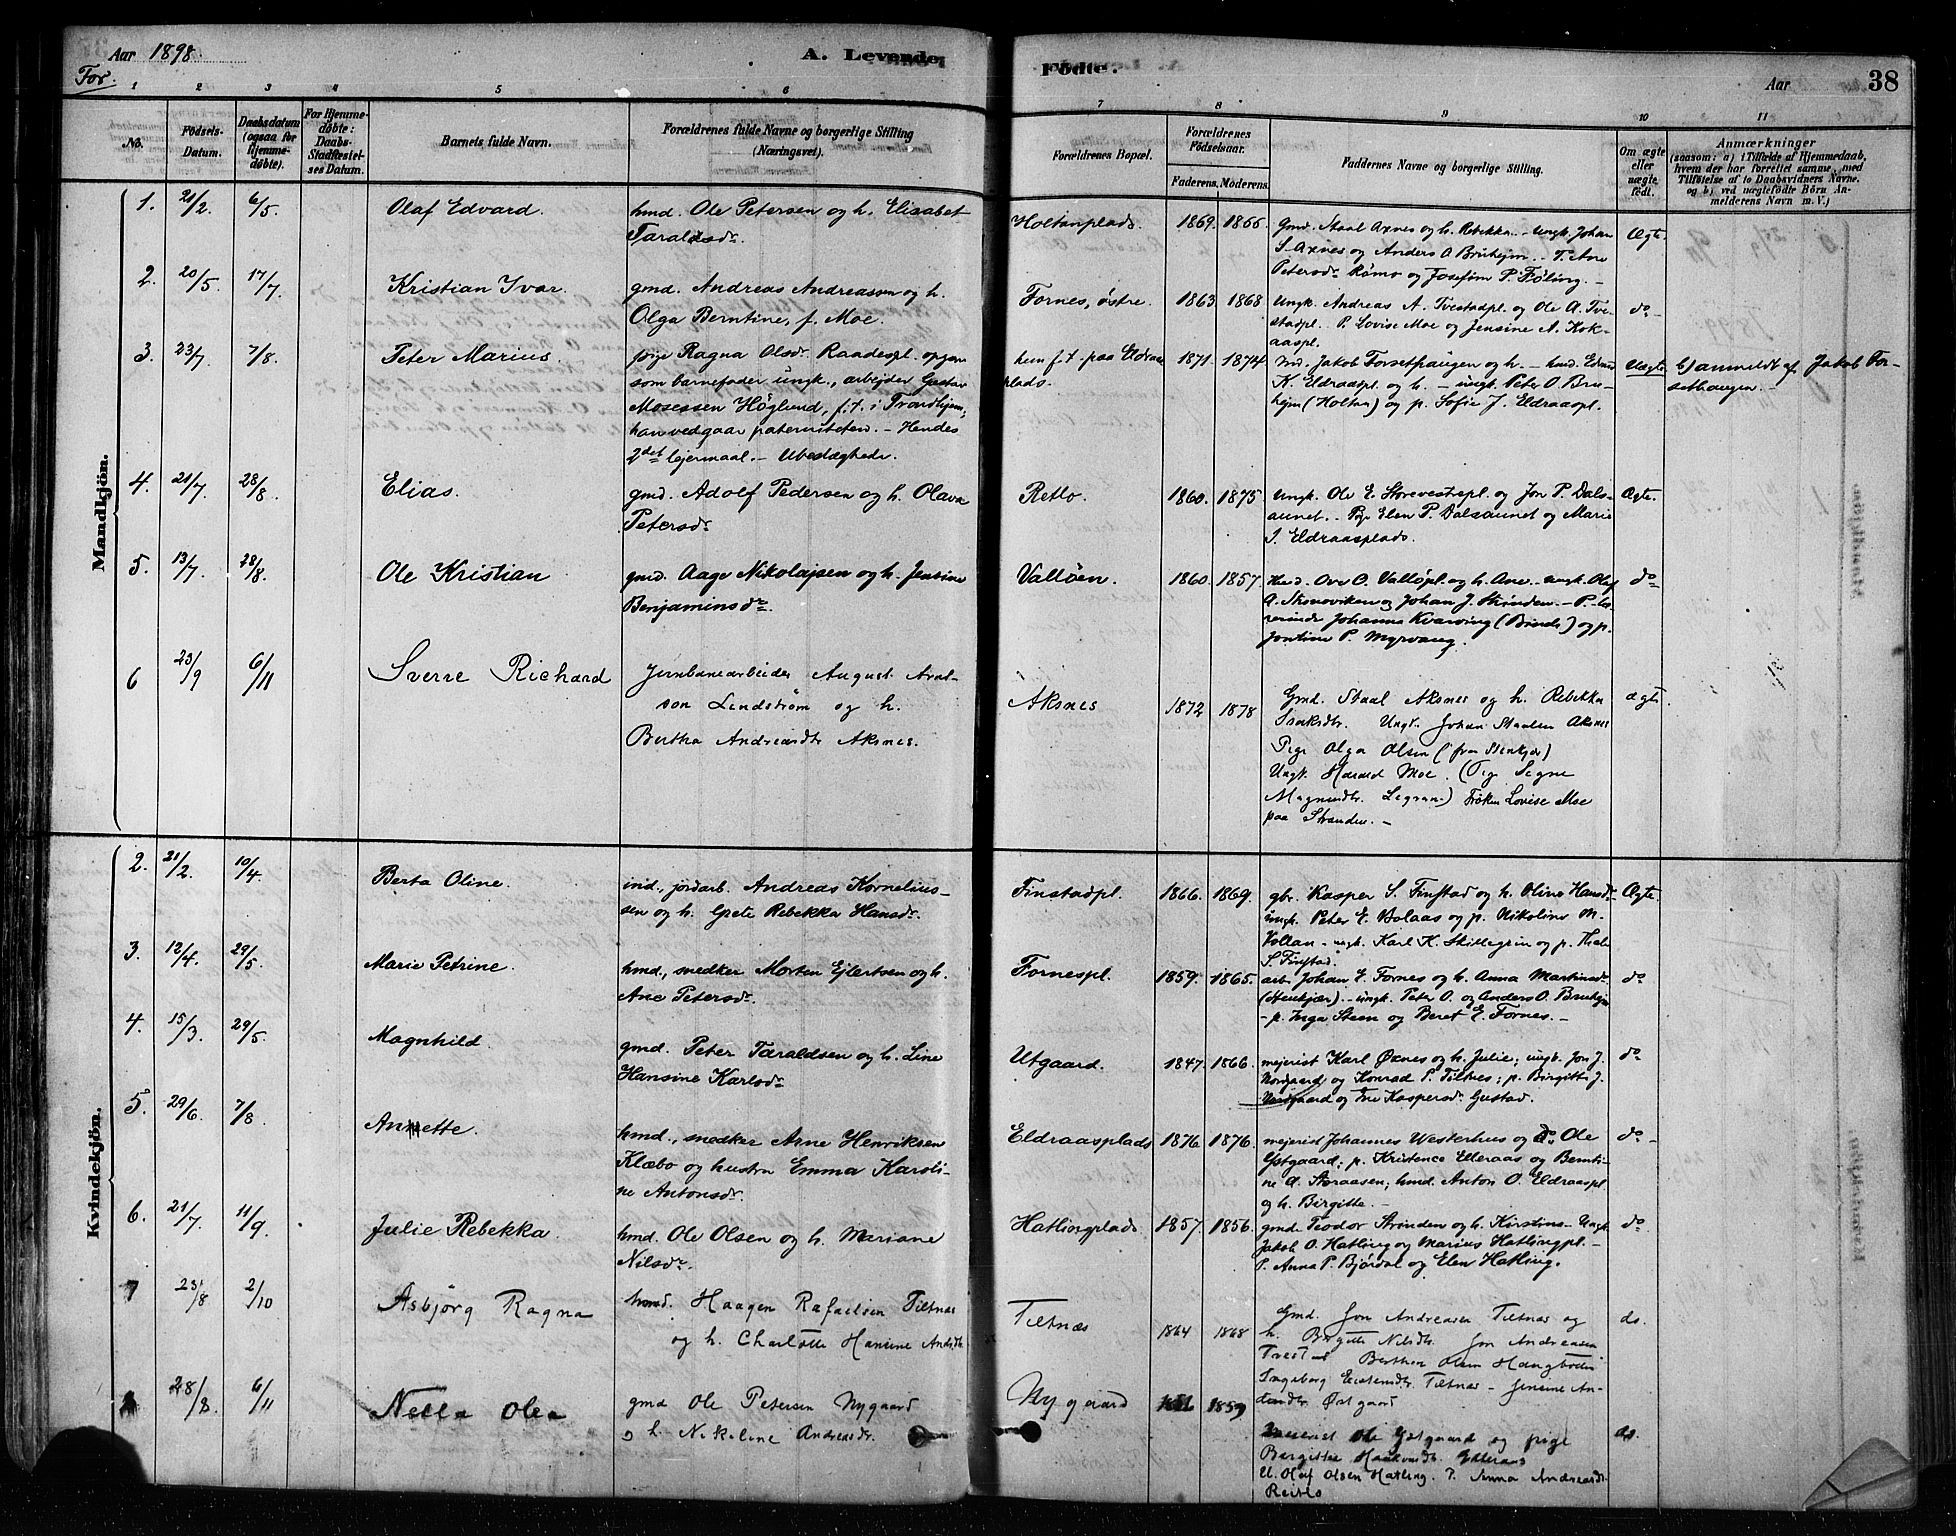 Aar 1898.
For
A. Levende
Fødte.
Aar
38
1 2 3 4 5 6 7 8 9 10 11
No.
Fødsels-
Datum.
Daabsdatum
(ogsaa for
Hjemme-
døbte).
For Hjemme-
døbte:
Daabs-
Stadfæstel-
ses Datum.
Barnets fulde Navn.
Forældrenes fulde Navne og borgerlige Stilling
(Næringsvei).
Forældrenes Bopæl.
Forældrenes
Fødselsaar.
Faderens. Moderens.
Faddernes Navne og borgerlige Stilling.
Om ægte
eller
uægte
født.
Anmærkninger
(saasom: a) i Tilfælde af Hjemmedaab,
hvem der har forrettet samme, med
Tilføielse af to Daabsvidners Navne.
og b) ved uægtefødte Børn An-
melderens Navn m. V.)
Mandkjön.
1. 21/2. 6/5. Olaf Edvard.
hmd. Ole Petersen og h. Elisabet
Taraldsdr.
Holtanplads. 1869. 1866.
gmd. Staal Axnes og h. Rebekka. - ungk. Johan
S. Axnes og Anders O. Bruheim. - T. Ane
Petersdr. Römo og Josefine P. Föling. -
Ægte.
2. 20/5. 17/7. Kristian Ivar.
gmd. Andreas Andreassen og h.
Olga Berntine, f. Moe.
Fornes, östre. 1863. 1868.
Ungk. Andreas A. Tvestadpl. og Ole A. Tve-
stadpl. P. Lovise Moe og Jensine A. Kok-
aaspl.
do
3. 23/7. 7/8. Peter Marius.
pige Ragna Olsdr. Raadespl. opgav
som barnefader ungk., arbejder Gustav
Mosessen Höglund, f.t. i Trondhjem,
han vedgaar paterniteten. - Hendes
2det lejermaal. - Ubeslægtede.
hun f.t. paa Eldraas-
plads. 1871. 1874.
Md. Jakob Forsethaugen og h. - hmd. Edvard
K. Eldraaspl. og h. - ungk. Peter O. Bru-
hejm (Holtan) og p. Sofie J. Eldraaspl.
Uægte
b) anmeldt af Jakob For-
sethaugen.
4. 21/7. 28/8. Elias.
gmd. Adolf Pedersen og h. Olava
Petersdr.
Retlo. 1860. 1875.
Ungk. Ole E. Storevestrepl. og Jon P. Dals-
aunet. - Pige Elen P. Dalsaunet og Marie
J. Eldraasplads.
Ægte.
5. 13/7. 28/8. Ole Kristian
gmd. Aage Nikolajsen og h. Jensine
Benjaminsdr.
Vallöen. 1860. 1857.
Hmd. Ove O. Vallöpl. og h. Ane. - ungk. Olaf
A. Skonoviken og Johan J. Strinden. - P. 
Johanna Kvarving (Binde) og p.
Jontine P. Myrvang.
do
6 23/9 6/11 Sverre Richard
Jernbanearbeider August Aral-
son Lindstrøm og h.
Bertha Andreasdtr Aksnes.
Aksnes 1872 1878
Gmd. Staal Aksnes og h. Rebekka
Isaksdtr. Ungk. Johan Staalsen Aksnes
Pige Olga Olsen (fra Stenkjær)
Ungk. Harald Moe. (Pig. Signe
Magnusdtr. Legran) Frøken Lovise Moe
paa Stranden. -
ægte
Kvindekjön.
2. 21/2. 10/4. Berta Oline.
ind., jordarb. Andreas Kornelius-
sen og h. Grete Rebekka Hansdr.
Finstadpl. 1866. 1869.
gbr. Kasper S. Finstad og h. Oline Hansdr.
ungk. Peter E. Bolaas og p. Nikoline M.
Vollan - ungk. Karl K. Skillegrin og p. Thale
S. Finstad.
Ægte.
3. 12/4. 29/5. Marie Petrine.
hmd., snedker Morten Ejlertsen og h.
Ane Petersdr.
Fornespl. 1859. 1865.
arb. Johan E. Fornes og h. Anna Martinsdr.
(Stenkjær). - ungk. Peter O. og Anders O. Bruhejm
- p. Inga Steen og Beret E. Fornes. -
do
4. 15/3. 29/5. Magnhild.
gmd. Peter Taraldsen og h. Line
Hansine Karlsdr.
Utgaard. 1847. 1866.
mejerist Karl Öxnes og h. Julie; ungk. Jon J.
Nordgaard og Konrad P. Tiltnes; p. Birgitte J.
Nordgaard og Ene Kaspersdr. Gustad.
do
5. 29/6. 7/8. Annette.
hmd., snedker Arne Henriksen
Klæbo og hustru Emma Karoli-
ne Antonsdr.
Eldraasplads 1876. 1876.
mejerist Johannes Westerhus og do Ole
Ystgaard; p. Kristence Elleraas og Bernti-
ne A. Storaasen; hmd. Anton O. Eldraaspl.
og h. Birgitte. -
do
6. 21/7. 11/9. Julie Rebekka.
hmd. Ole Olsen og h. Mariane
Nilsdr.
Hatlingplads 1857. 1856.
gmd. Teodor Strinden og h. Kirstine - ungk.
Jakob O. Hatling og Marius Hatlingpl. -
P. Anna P. Björdal og Elen Hatling.
do
7 23/8 2/10 Asbjörg Ragna
hmd. Haagen Rafaelsen Tiltnæs
og h. Charlotte Hansine Andrsdtr.
Tiltnæs 1864 1868
Gmd. Jon Andreasen Tiltnæs og
h. Birgitte Nilsdtr. Jon Andreasen
Tvestad Berthea Olsen Haugbotn
Ingeborg Tiltnæs - Jensine An-
Østgaard
do.
28/8 6/11 Nella Olea
gmd Ole Petersen Nygaard
og h. Nikoline Andreasdtr.
Nygaard 1859
Meierist Ole Ystgaard og pige
Birgitte Haakonsdtr. Ydteraas
U. Olaf Olsen Hatling. P. Anna Andreasdtr.
Reitlo
do.